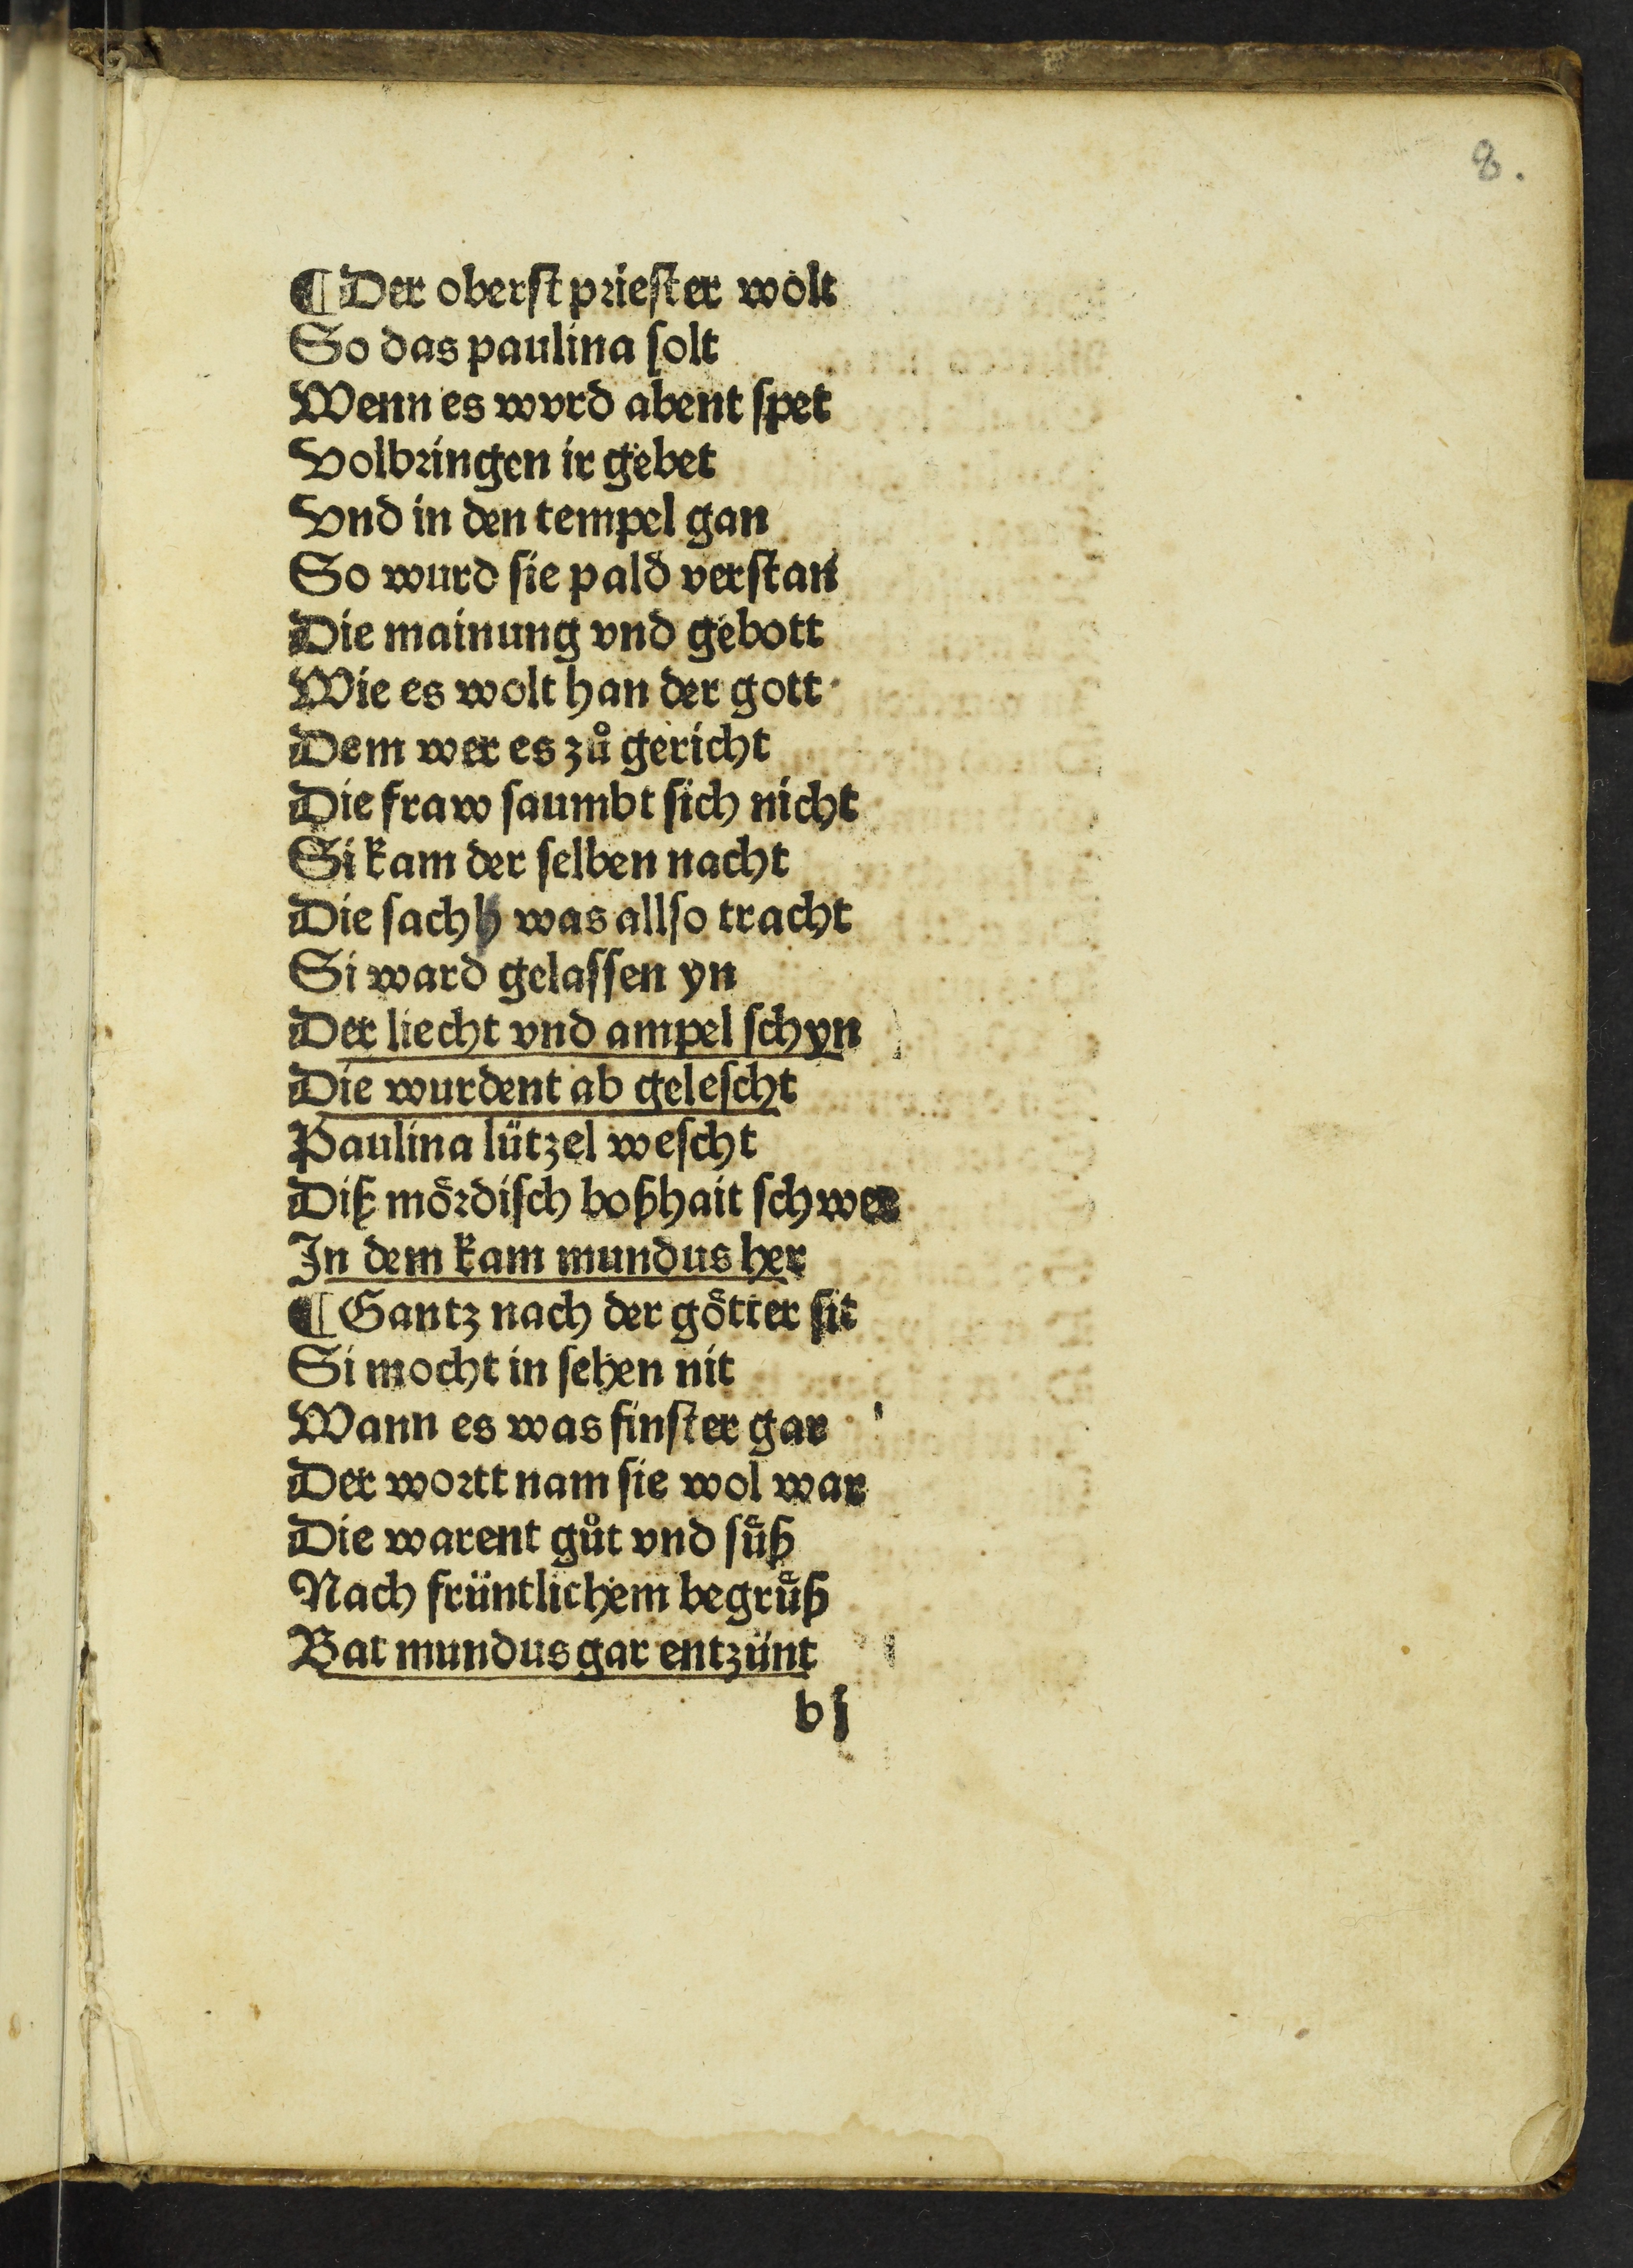 8.
¶ Der oberst priester wolt
So das paulina solt
Wenn es wvrd abent spet
Volbringen ir gebet
Vnd in den tempel gan
So wurd sie pald verstan
Die mainung vnd gebott
Wie es wolt han der gott
Dem wer es zů gericht
Die fraw saumbt sich nicht
Si kam der selben nacht
Die sachh was allso tracht
Si ward gelassen yn
Der liecht vnd ampel schyn
Die wurdent ab gelescht
Paulina lützel wescht
Diß moͤrdisch boßhait schwer
In dem kam mundus her
¶ Gantz nach der goͤtter sit
Si mocht in sehen nit
Wann es was finster gar
Der wortt nam sie wol war
Die warent gůt vnd suͤß
Nach früntlichem begruͤß
Bat mundus gar entzünt
bj